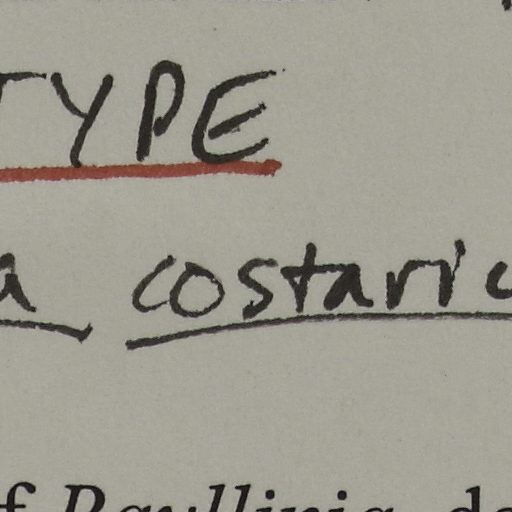 TYPE
a costaric
f Paullinia, de